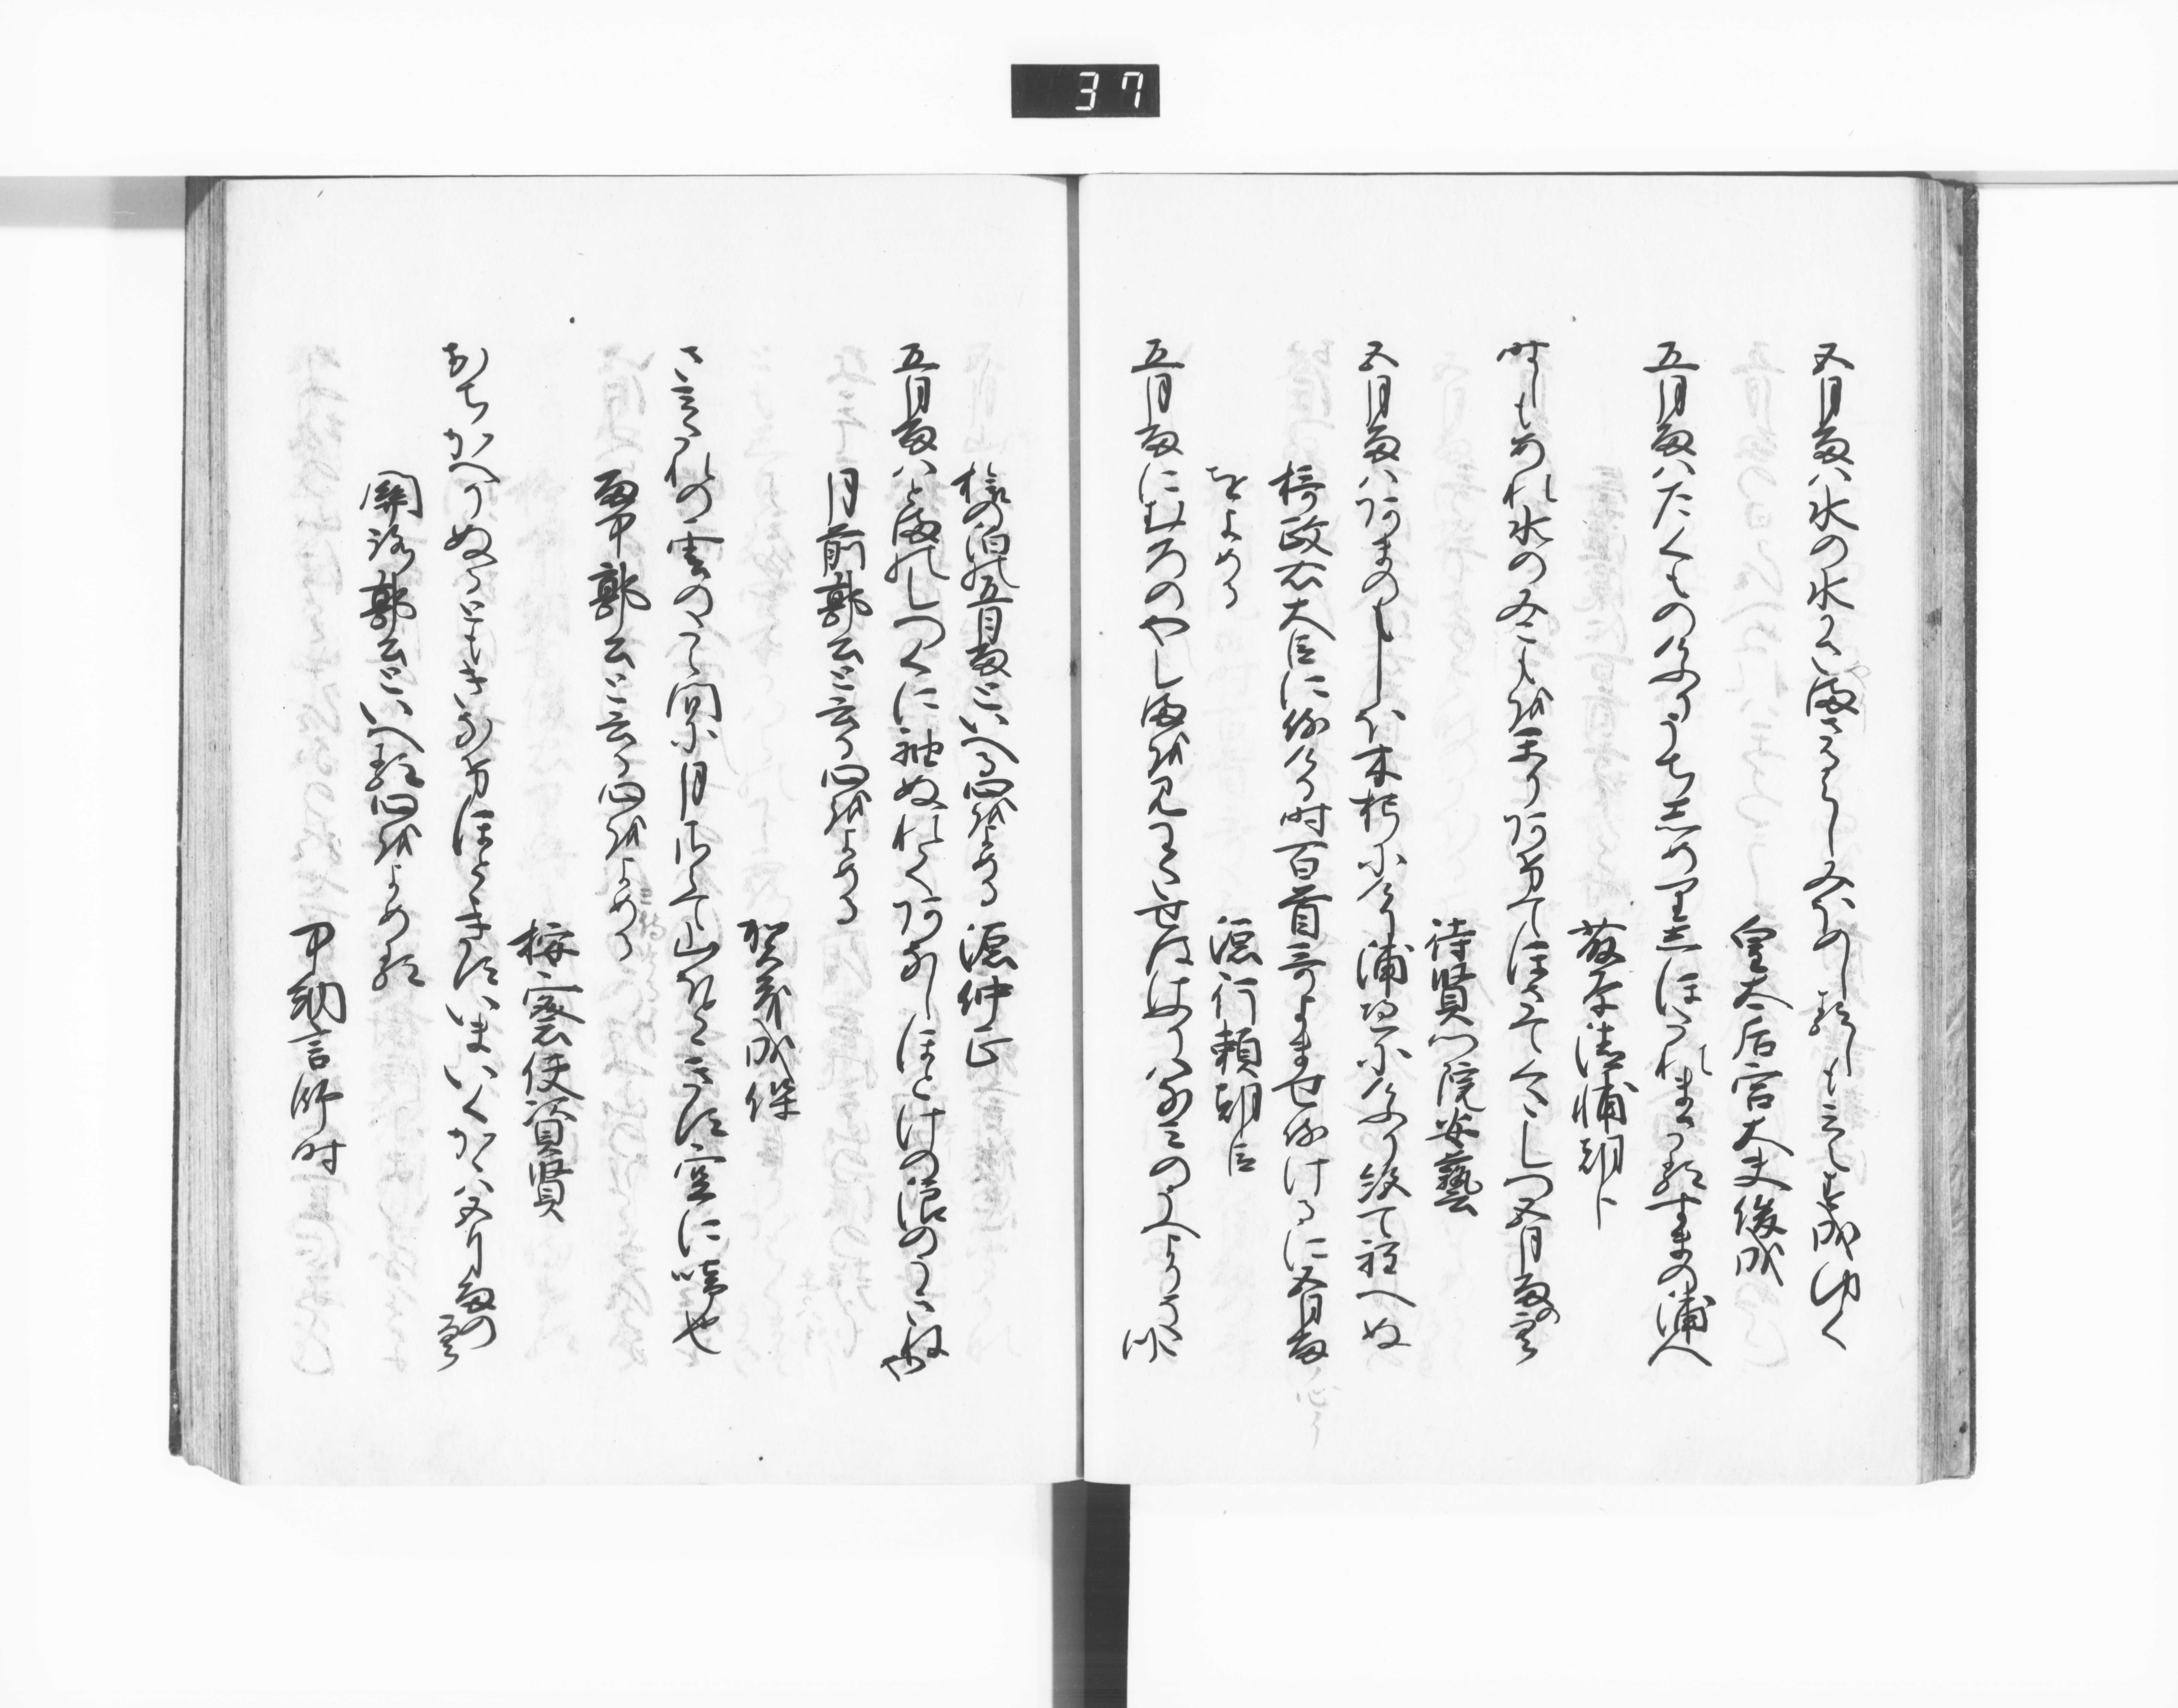 五月雨ハ水の水かさ満さるらしみおのしるしもみえす成ゆく
皇太后宮大夫俊成
五月雨ハたくもの煙うち志めり志ほたれまさるすまの浦人
藤原清輔朝卜
時しもあれ水のみこもを苅あけてほさてくたしつ五月雨の空
待賢門院安藝
五月雨ハあまのもしほ木朽にけり浦邊に煙絶て程へぬ
摂政右大臣に侍ける時百首哥よませ侍けるに五月雨
をよめる 源行頼朝臣
五月雨にむろのやし満を見わたせはけふりハなみのうへよりそ立
旅の泊の五月雨といへる心をよめる 源仲正
五月雨ハと満のしつくに袖ぬれてあなしほとけの浪のうきねや
月前郭公と云る心をよめる
賀茂成保
さみたれの雲のたえ間に月さえて山ほとゝきす空に啼也
雨中郭公と云る心をよめる
按察使資賢
をちかへりぬるともきなけほとゝきすいまいくかゝハ五月雨の空
関路郭公といへる心をよめる
中納言師時